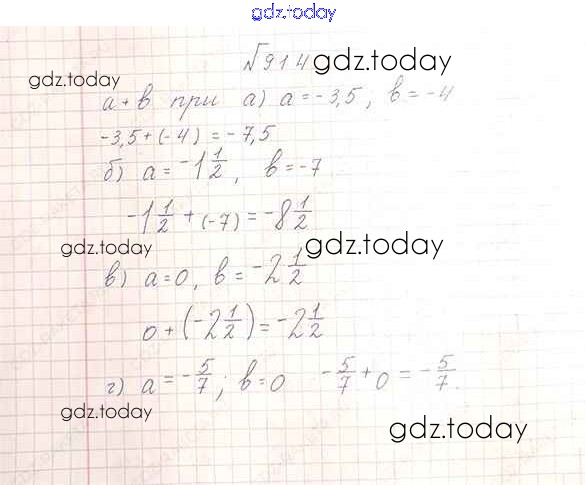 gdz.today
√914 gdz.today
gdz.today
a+b при а) a=-3,5; b=-4
-3,5+(-4)=-7,5
б) a=-1 1/2, b=-7
-1 1/2+(-7)=-8 1/2
gdz.today gdz.today
в) a=0, b=-2 1/2
0+(-2 1/2)=-2 1/2
г) a=-5/7; b=0 -5/7+0=-5/7.
gdz.today
gdz.today